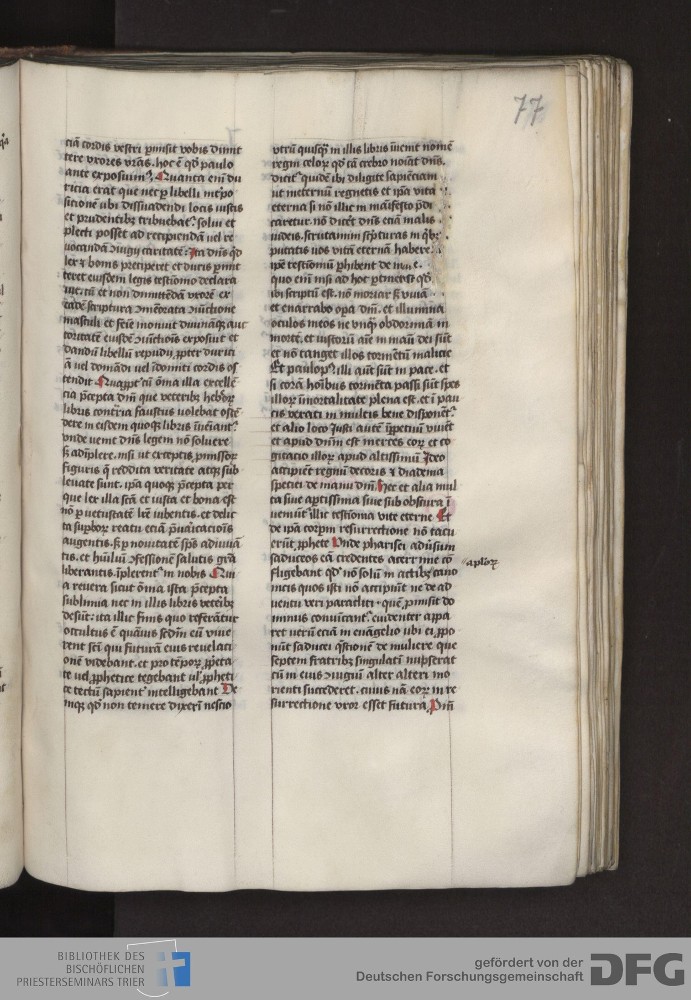 77
ciā cordis vestri ꝑmisit vobis dimit
tere vxores vr̄as. hoc ē qd̄ paulo
ante exposuim9. Quanta em̄ du
ricia erat que nec ꝑ libelli int̓po
sicionē ubi dissuadendi locus iustis
et prudentibꝫ tribuebat᷑. solui et
plecti posset ad recipiendā uel re
uocandā ꝯiugii caritatē. Ita dn̄s qd̄
lex ⁊ bonis preciperet et duris ꝑmit
teret eiusdem legis testīonio declara
uit. tā et non dimittēdā vxorē ex
eadē scriptura ꝯmēorata ꝯiūctione
masculi et femīe monuit diuinā aut
toritatē eiusdē ꝯiūctiōis exposuit et
dandū libellū repudij ꝓpter durici
ā vel domādi vel īdomiti cordis os
tendit Quapp̄t̓ cū om̄ia illa excellē
cia p̄cepta dn̄i que veteribꝫ hebreor̄
libris contr̄ia faustus uolebat ostē
dere in eisdem quoqꝫ libris inueniant᷑
vnde uenit dn̄s legem nō soluere
sꝫ adīplere. nisi ut exceptis ꝓmissor̄
figuris q̄ reddita veritate atqꝫ sub
leuate sunt. ipā quoqꝫ p̄cepta per
que lex illa scā et iusta et bona est
nō ꝑ vetustatē lr̄e iubentis. et delic
ta suꝑbor̄ reatu eciā p̄uaricaciōis
augentis. sꝫ ꝑ nouitatē sp̄s adiuuā
tis. et hūiliū ꝯfessionē salutis gr̄a
liberantis. īplerent᷑ in nobis Qui
a reuera sicut om̄ia ista p̄cepta
sublimia nec in illis libris veteribꝫ
desūt. ita illic finis quo referātur
occultus ē quāuis scdm̄ eū viue
rent scī qui futurā eius reuelaci
onē videbant. et pro tēpor̄ ꝓp̄eta
te vel ꝓphetice tegebant ul̓ ꝓpheti
ce tectū sapient᷑ intelligebant De
niqꝫ qd̄ non temere dixerī nescio
vtrū quisqꝫ in illis libris īueniat nomē
regni celor̄ qd̄ tā crebro noīat dn̄s.
dicit᷑ quidē ibi diligite sapiēciam
ut ineternū regnetis et ipa vita
eterna si nō illic in māifesto p̄di
caretur. nō diceret dn̄s eciā malis
iudeis. scrutamini scp̄turas in qͥbꝫ
putatis vos vitā eternā habere.
ipē testīoniū phibent de me.
quo em̄ nisi ad hoc ꝑtinebat qd̄
ibi scriptū est. nō moriar sꝫ viuā
et enarrabo oꝑa dn̄i. et illumina
oculos meos ne vnqꝫ obdormiā in
mortē. et iustorū aīe in manu dei sūt
et nō tanget illos tormētū malicie
Et paulopꝰ illi aūt sūt in pace. et
si corā hoībus tormēta passi sūt spes
illor̄ īmortalitate plena est. et ī pau
cis vexati in multis bene disponēt᷑.
et alio loco Justi autē īperpetuū viuēt
et apud dn̄m est merces eor̄ et co
gitacio illor̄ apud altissimū Ideo
accipiēt regnū decoris ⁊ diadema
speciei de manu dn̄i. Hec et alia mul
ta siue ap̄tissima siue sub obscura ī
ueniūt᷑ illic testīonia vite eterne Et
de ipā corpm̄ resurrectione nō tacu
erūt ꝓphete Unde pharisei adūsum
saduceos eā credentes acerrime cō
fligebant qd̄ nō solū in actibꝫ cano
nicis quos isti nō accipiūt ne de ad
uentu veri paracliti. quē ꝓmisit do
minus conuīcant᷑. euidenter appa
ret verū eciā in euāgelio ubi ei ꝓpo
nūt saducei qͣstionē de muliere que
septem fratribꝫ singulatī nupserat
cū in eius ꝯiugiū alter alteri mo
rienti succederet. cuius nā eor̄ in re
surrectione vxor esset futura Dn̄i
aplor̄
BIBLIOTHEK DES
BISCHÖFLICHEN
PRIESTERSEMINARS TRIER
gefördert von der
Deutschen Forschungsgemeinschaft
DFG